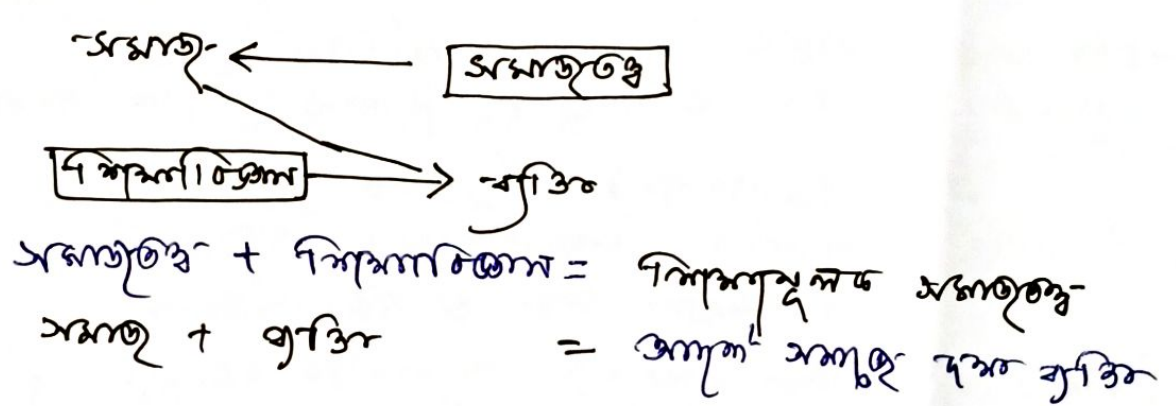 সমাজ ← সমাজতত্ত্ব
শিক্ষাবিজ্ঞান → ব্যক্তি
সমাজতত্ত্ব + শিক্ষাবিজ্ঞান = শিক্ষামূলক সমাজতত্ত্ব
সমাজ + ব্যক্তি = আদর্শ সমাজে দক্ষ ব্যক্তি